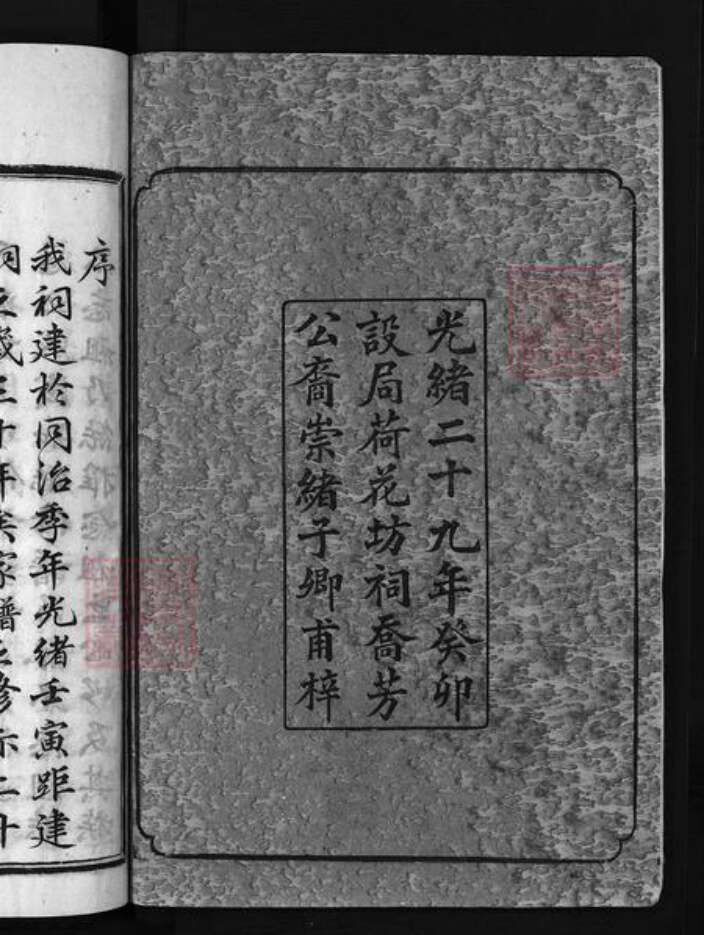 光緒二十九年癸卯
設局荷花坊祠喬芳
公裔崇緒子卿甫梓
序
我祠建於同治季年光緒壬寅距建
祠之歲三十年矣家譜之修亦二十